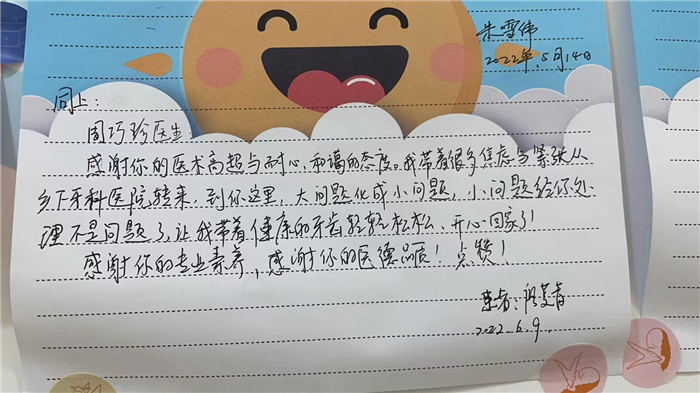 朱雪伟
2022年5月14日
同上:
周巧珍医生:
感谢你的医术高超与耐心,和谒的态度。我带着很多焦虑与紧张从
乡下牙科医院转来,到你这里,大问题化成小问题,小问题给你处
理不是问题了,让我带着健康的牙齿轻轻松松、开心回家了!
感谢你的专业素养,感谢你的医德品质!点赞!
患者:
2022.6.9.